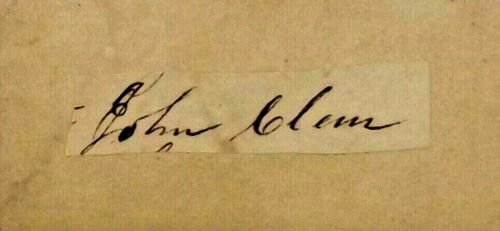 John Clem